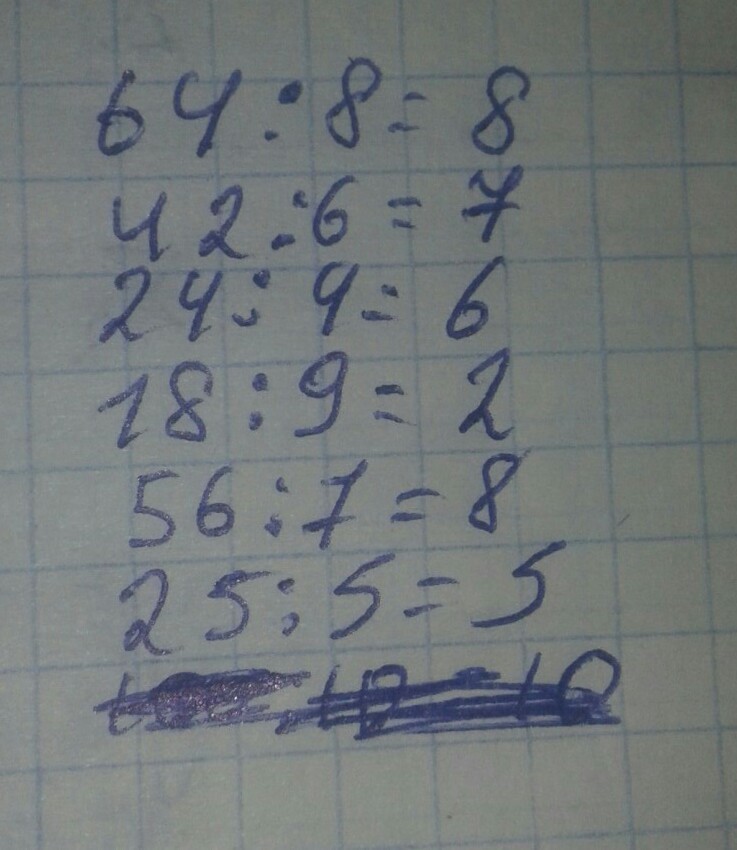 64:8=8
42:6=7
24:4=6
18:9=2
56:7=8
25:5=5